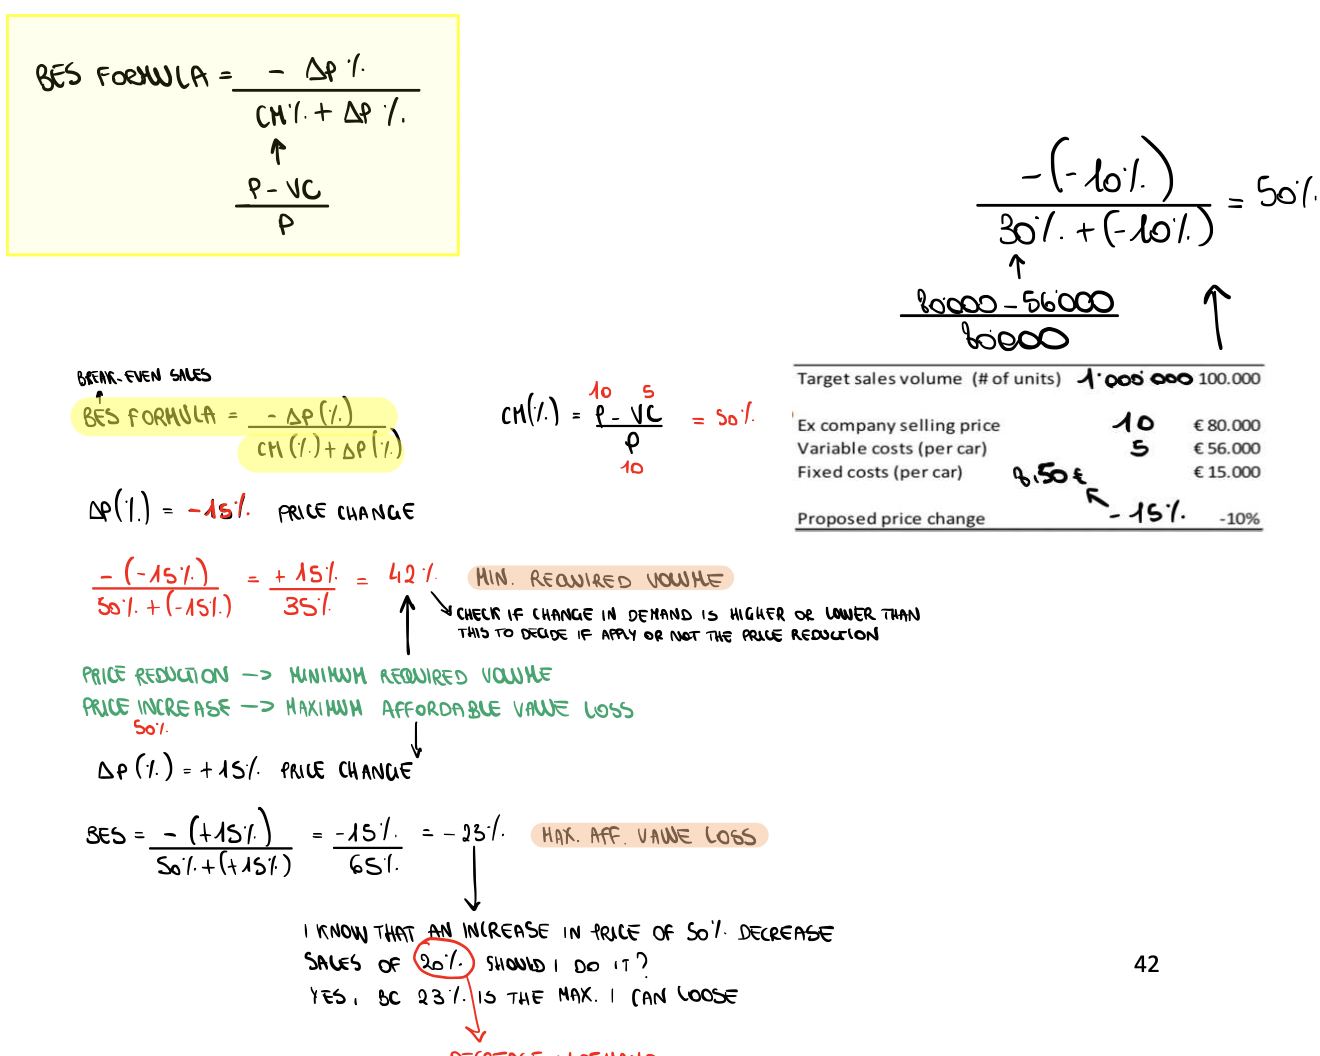 BES FORMULA = - ΔP %
CM% + ΔP %
↑
P - VC
P
-(-10%)
30% + (-10%)
= 50%
80000 - 56000
80000
BREAK-EVEN SALES
BES FORMULA = - ΔP (%)
CM (%) + ΔP (%)
CM(%) = P - VC = 50%
10 5
P
10
Target sales volume (# of units) 1'000'000 100.000
Ex company selling price 10 € 80.000
Variable costs (per car) 5 € 56.000
Fixed costs (per car) 8,50 € € 15.000
Proposed price change - 15% -10%
ΔP(%) = -15% PRICE CHANGE
-(-15%) = +15% = 42% MIN. REQUIRED VOLUME
50% + (-15%) 35%
CHECK IF CHANGE IN DEMAND IS HIGHER OR LOWER THAN
THIS TO DECIDE IF APPLY OR NOT THE PRICE REDUCTION
PRICE REDUCTION -> MINIMUM REQUIRED VOLUME
PRICE INCREASE -> MAXIMUM AFFORDABLE VALUE LOSS
50%
ΔP (%) = +15% PRICE CHANGE
BES = -(+15%) = -15% = -23% MAX. AFF. VALUE LOSS
50% + (+15%) 65%
I KNOW THAT AN INCREASE IN PRICE OF 50% DECREASE
SALES OF 20% SHOULD I DO IT?
YES, BC 23% IS THE MAX. I CAN LOOSE
42